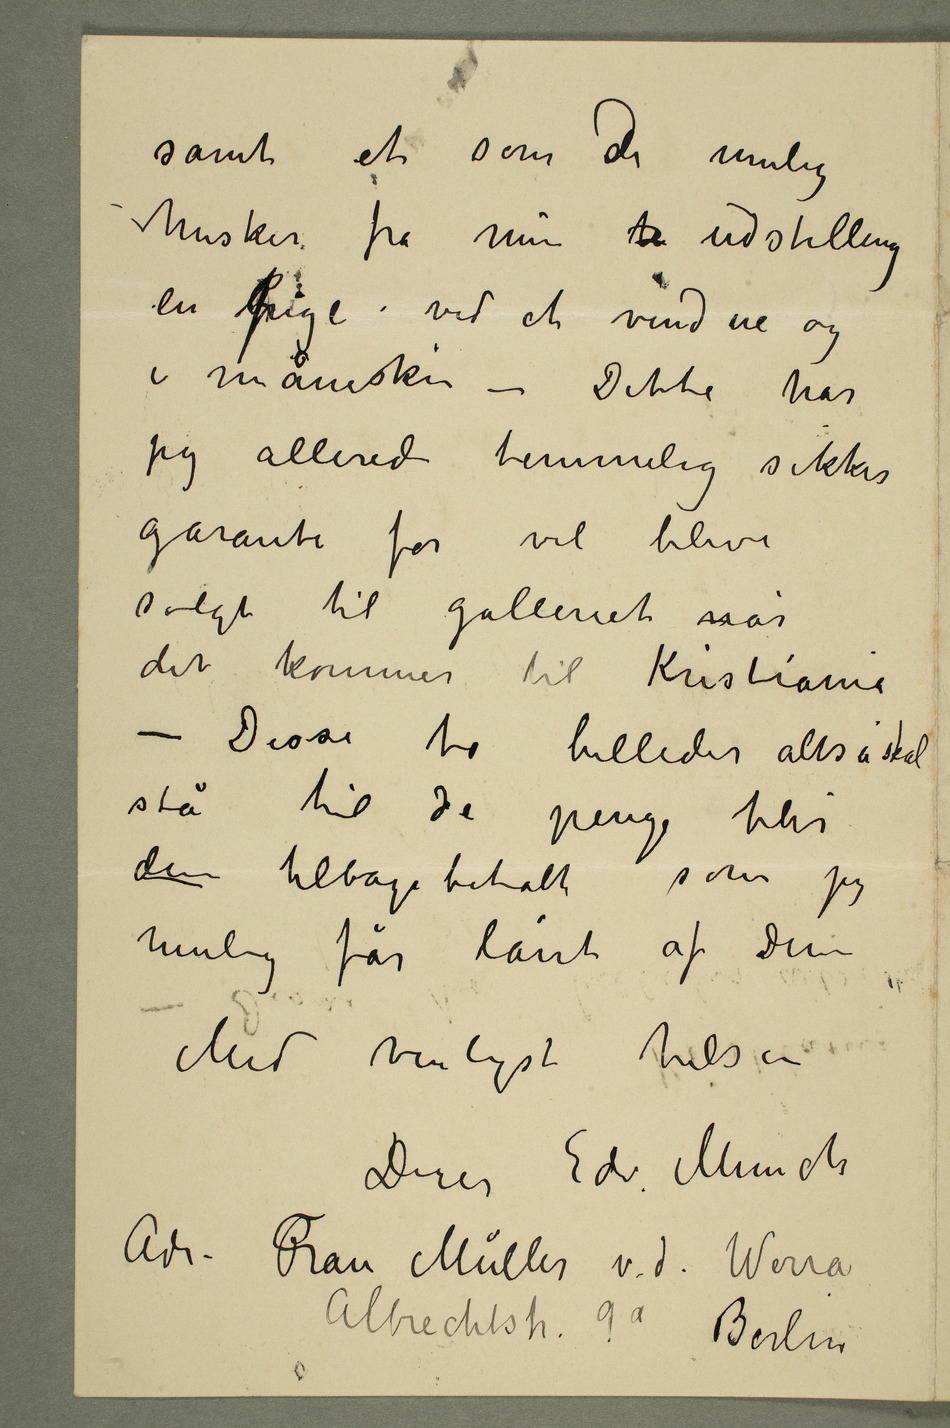 samt et som De mulig
husker fra min udstilling
en Pige ved et vindue og
i måneskin – Dette har
jeg allerede temmelig sikker
garanti for vil blive
solgt til galleriet når
det kommer til Kristiania
– Disse to billeder altså skal
stå til de penge blir
dem tilbagebetalt som jeg
mulig får lånt af Dem
–
Med venligst hilsen
Deres Edv. Munch
Adr. Frau Müller v.d. Werra
Albrechtstr. 9a Berlin